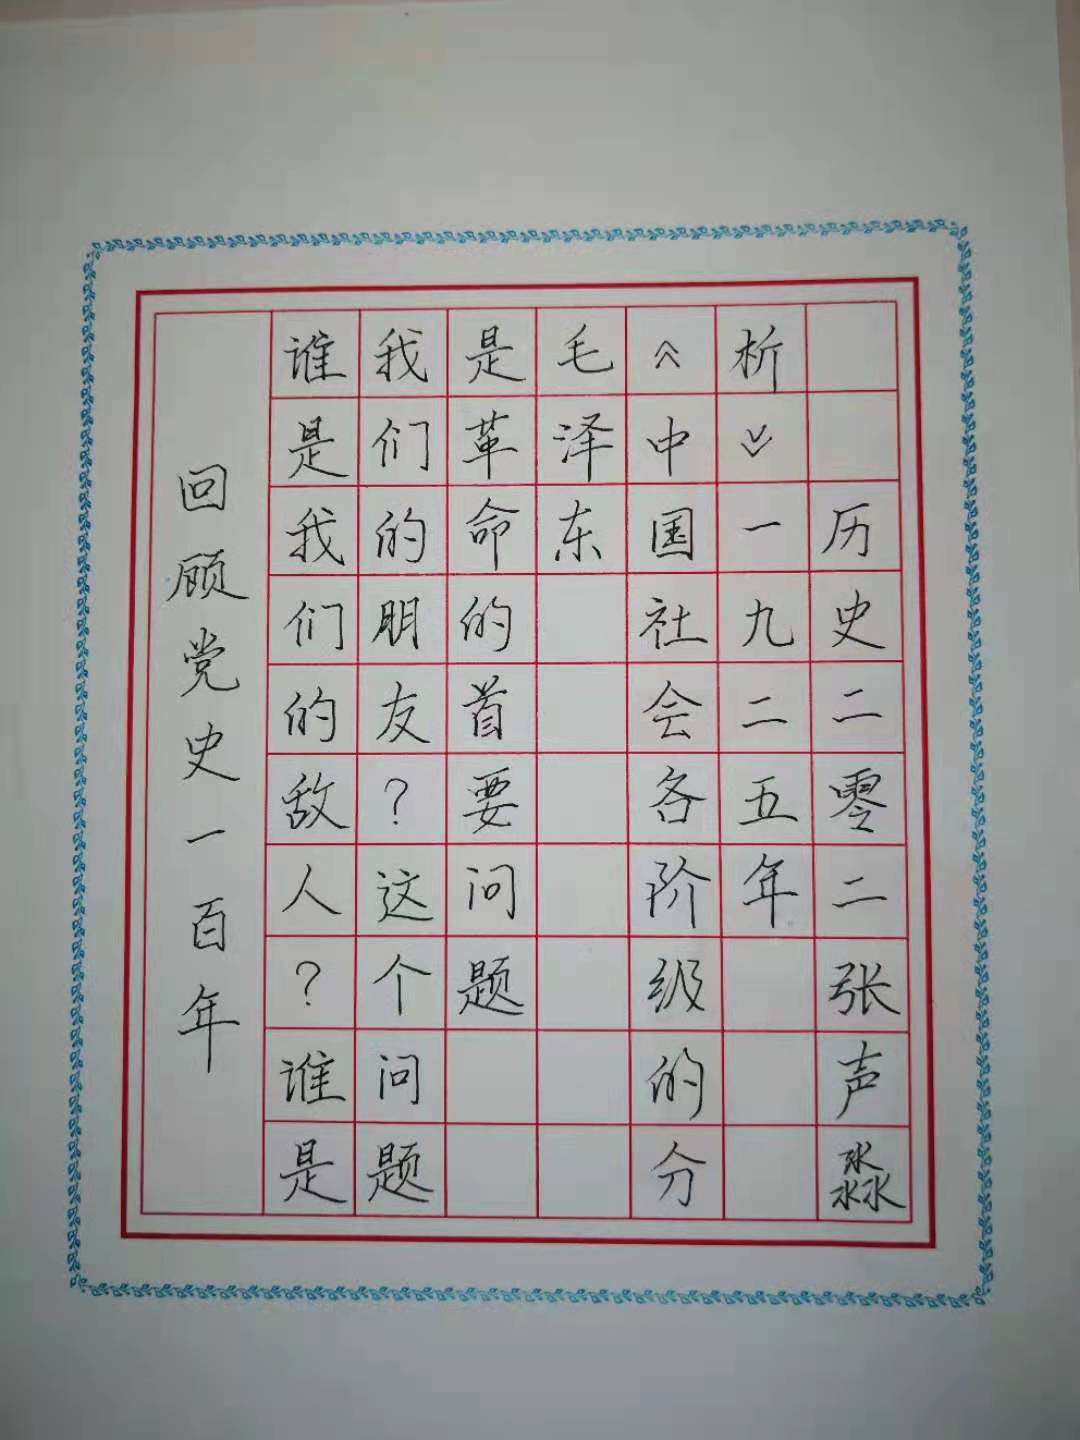 回顾党史一百年
谁是我们的敌人？谁是
我们的朋友？这个问题
是革命的首要问题
毛泽东
《中国社会各阶级的分
析》一九二五年
历史二零二张声淼